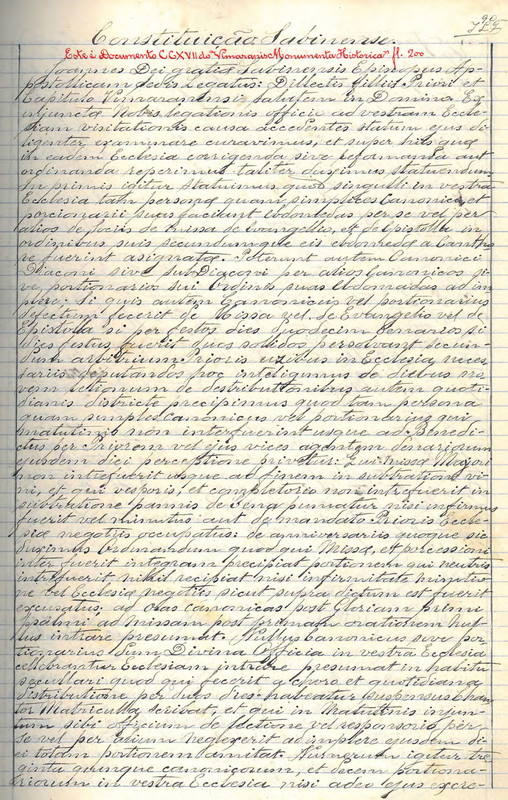 90
Constituição Sabinense.
Este é Documento CCXVII do "Vimaranis Monumenta Historica" fl. 200
Joannes Dei gratia Sabinensis Episcopus Ap-
postolicam sedis Legatus: Dillectis filiis Priori et
Capitulo Vimaranensi salutem in Domino Ex
injuncto Nobis legationis officio ad vestram Eccle-
siam visitationis causa accedentes statum ejus di-
ligenter examinare curavimus, et super hiis quæ
in eadem Ecclesia corrigenda sive reformanda aut
ordinanda reperimus taliter duximus statuendum
In primis igitur statuimus quod singulli in vestra
Ecclesia tam personæ quam simplices Canonici, et
porcionarii suas faciunt ebdomedas per se vel per
alios de sociis de missa de Evangellio, et de Epistolla in
ordinibus suis secundumque eis ebdomedæ a Cantho-
re fuerint asignatæ. Poterunt autem Canonici
Diaconi sive subDiaconi per alios Canonicos si-
ve portionarios sui ordinis suas ebdomadas ad im-
plere: Si quis autem Canonicus vel portionarius
defectum fecerit de Missa vel de Evangelio vel de
Epistolla si per festos dies duodecim Denarios si
dies festus fuerit quos solidos persolvant secun-
dum arbitrium Prioris uzibus in Ecclesia neces
sariis deputandos hoc inteligimus de diebus no-
vem lectionum de destributtionibus autem quoti-
dianis districte precipimus quod tam persona
quam simplex canonicus vel portionarius qui
matutinis non interfuerint usque ad Benedi-
ctus per Priorem vel ejus vices agentem denariorum
ejusdem diei perceptione privetur: Qui missæ Majori
non intrefuerit usque ad finem in subtratione vi-
ni, et qui vesporis, et completorio non intrefuerit in
subtratione pannis de Cena puniatur nisi infirmus
fuerit vel minutus aut de mandato Prioris Eccle-
siæ negotiis occupatus: de anniversariis quoque sic
duximus ordinandum quod qui Missæ, et porcessioni
inter fuerit integram precipiat portionem qui neutris
intrefuerit nihil recipiat nisi infirmitate minutio
ne vel Ecclesiæ negotiis sicut supra dictum est fuerit
excusatus; ad oras canonicas post Gloriam primi
psalmi ad missam post primam orationem nul-
lus intrare presumat. Nullus Canonicus sive por
tionarius dum Divina Officia in vestra Ecclesia
cellebrantur Ecclesiam intrare presumat in habitu
secullari quod qui fecerit a choro et quotidiana
distributione per tres dies habeatur suspensus Chan
tor Matriculla scribat, et qui in Matuttinis injun-
tum sibi officium de lectione vel responsorio per
se vel per alium neglexerit ad implere ejusdem di-
ei totam portionem amitat. Numerum igitur tre
ginta quinque canonicorum, et decem portiona-
riorum in vestra Ecclesia nisi adeo ejus excre-